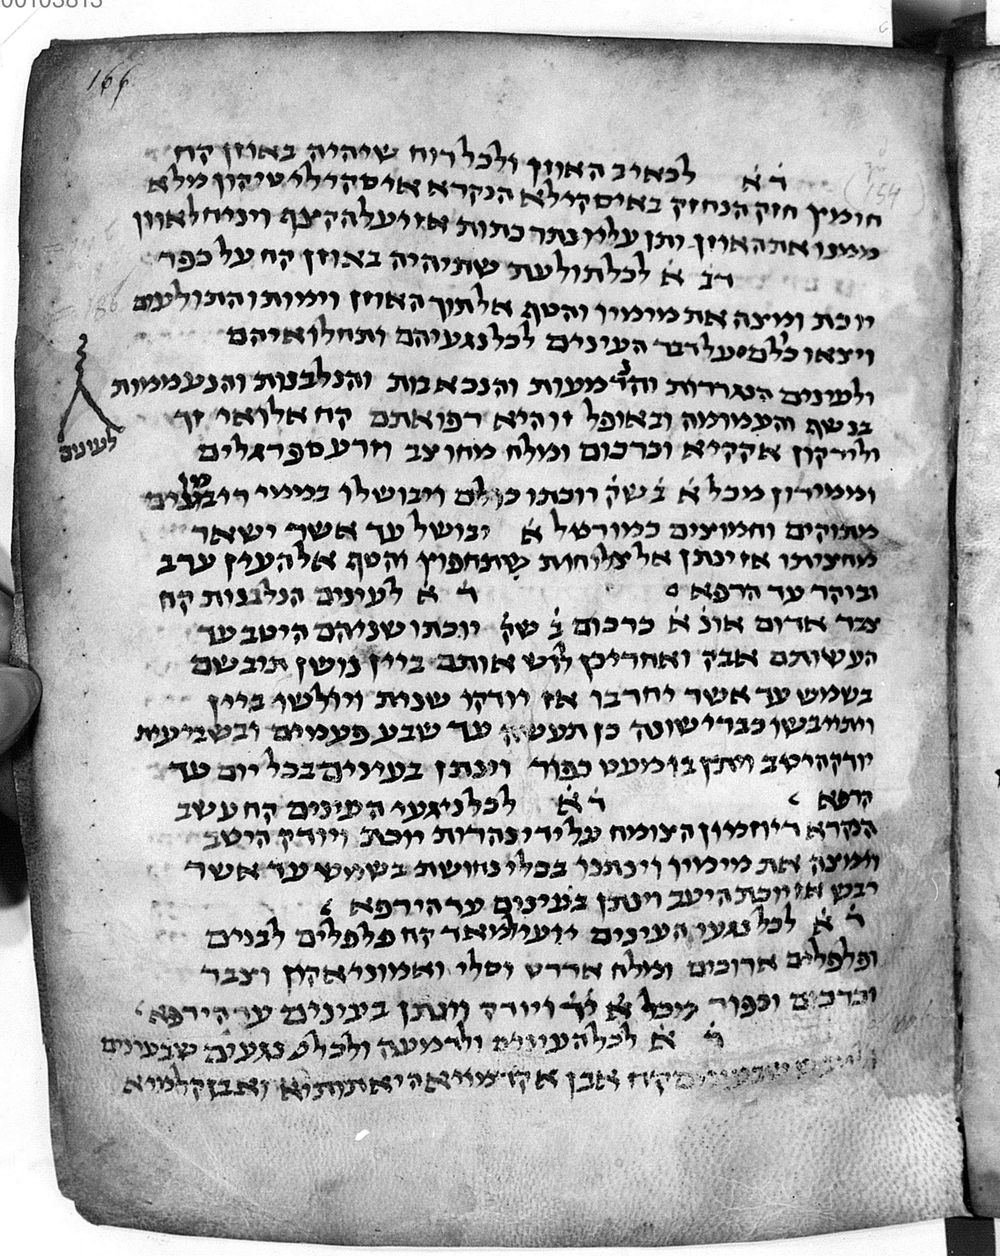 166
ר׳ א׳ לכאיב האוזן ולכל רוח שיהיה באוזן קח
חומיץ חזק הנחזק באיסקילא הנקרא אי סקילי טיקון מלא
ממנו את האוזן ותן עליו נתר כתות אז יעלה קצף ויניח לאוזן
רב א׳ לכל תולעת שתיהיה באוזן קח על כפר
יוכת ומצה את מימיו והטף אל תוך האוזן וימותו התולעים
ויצאו כלם על דבר העינים לכל נגעיהם ותחלואיהם
ולעינים הנגררות והדמעות והנכאבות והנלבנות והנעממות
בנשף והעמומה ובאופל זו היא רפואתם קח אלואי זך
ולירקון אקקיא וכרכום ומלח מחוצב וזרע ספרגלים
וממירון מכל א׳ ב׳ שק׳ ויכתו כולם ויבושלו במימי רימונים
מתוקים וחמוצים כמורסל א׳ יבושל עד אשר ישאר
מחציתו אז ינתן אל צלוחות שתחפוץ והטף אל העין ערב
ובוקר עד הרפא ר׳ א׳ לעינים הנלבנות קח
צבר אדום אונ׳ א׳ כרכום ב׳ שק׳ יוכתו שניהם היטב עד
העשותם אבק ואחרי כן לוש אותם ביין נושן תיבשם
בשמש עד אשר יחרבו אז יודקו שנית וילושו ביין
ויתייבשו כברישונה כן תעשה עד שבע פעמים ובשביעית
יודק היטב ויתן בו מעט כפור וינתן בעינים בכל יום עד
הרפא ר׳ א׳ לכל ניגעי העינים קח עשב
הנקרא ריחמון הצומח על ידי נהרות יוכת ויודק היטב
וימצה את מימיו וינתנו בכלי נחושת בשמש עד אשר
יבש אז יוכת היטב וינתן בעינים עד הירפא
ר׳ א׳ לכל נגעי העינים יועיל מאד קח פלפלים לבנים
ופלפלים ארוכים ומלח אדרט וסלי ואמוניאקון וצבר
וכרכום וכפור מכל א׳ יודק וינתן בעינים עד הירפא
ר׳ א׳ לכל העינים ולדמעה ולכל נגעים שבעינים
קח אבן אקדמייאה יאתותיא ואבן קלמיא
לעינים